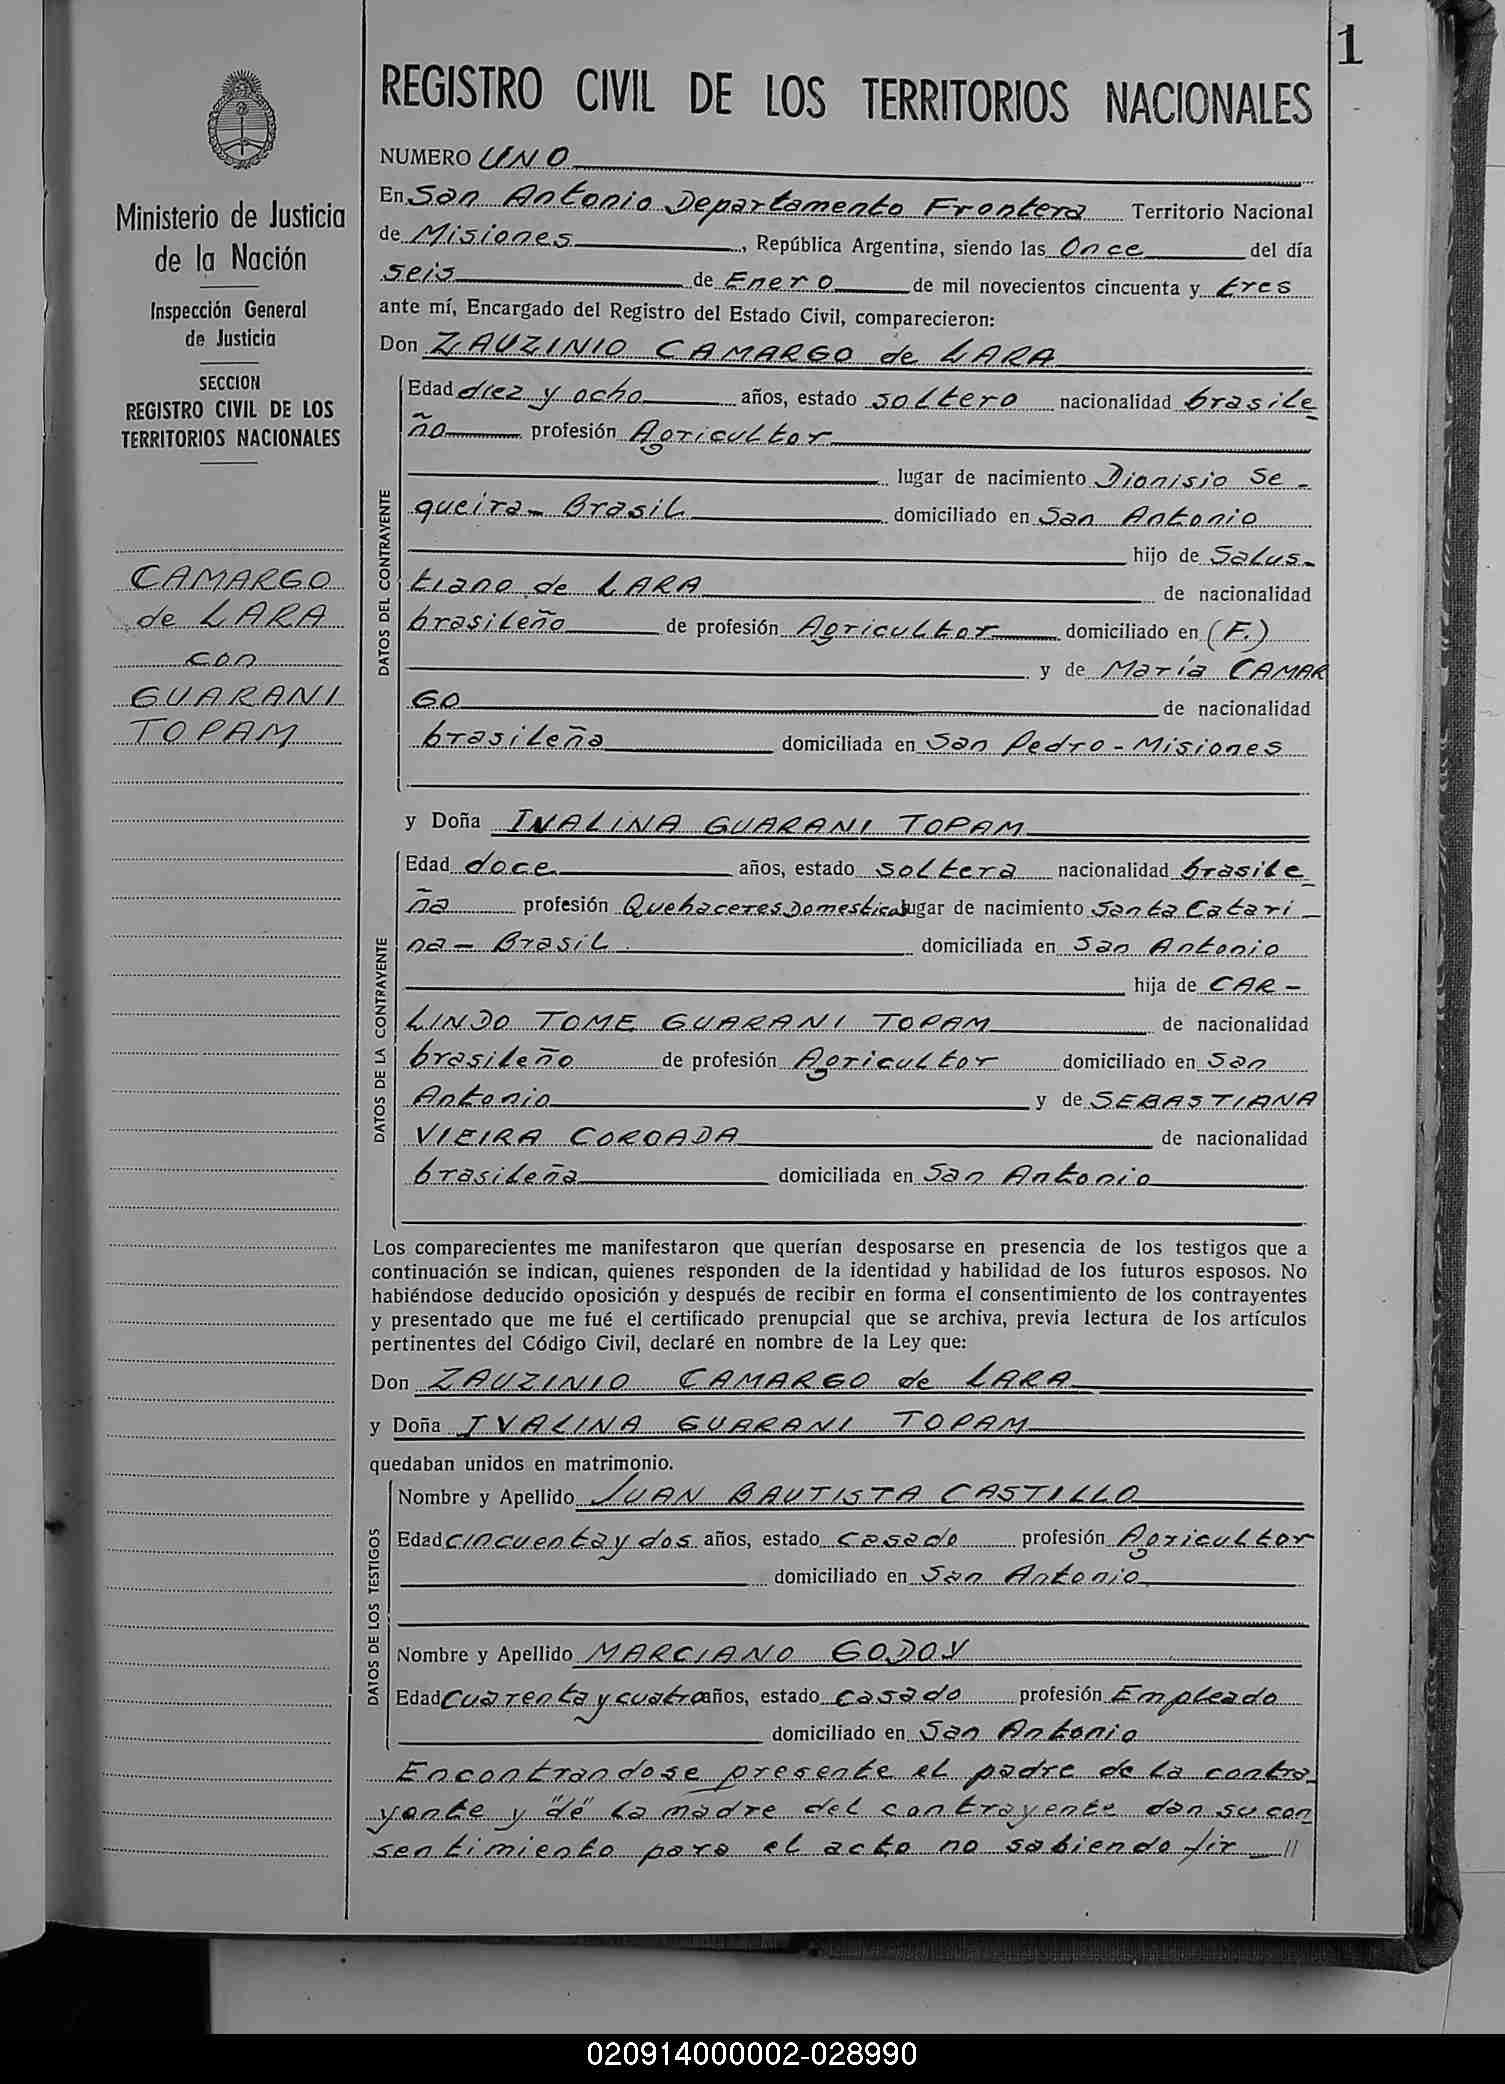 1
REGISTRO CIVIL DE LOS TERRITORIOS NACIONALES
Ministerio de Justicia
de la Nación
Inspección General
de Justicia
SECCION
REGISTRO CIVIL DE LOS
TERRITORIOS NACIONALES
CAMARGO
de LARA
con
GUARANI
TOPAM
NUMERO UNO
En San Antonio Departamento Frontera Territorio Nacional
de Misiones, República Argentina, siendo las Once del día
seis de Enero de mil novecientos cincuenta y tres
ante mí, Encargado del Registro del Estado Civil, comparecieron:
Don ZAUZINIO CAMARGO de LARA
DATOS DEL CONTRAYENTE
Edad diez y ocho años, estado soltero nacionalidad brasile
ño profesión Agricultor
lugar de nacimiento Dionisio Se-
queira- Brasil domiciliado en San Antonio
hijo de Salus-
tiano de LARA de nacionalidad
brasileño de profesión Agricultor domiciliado en (F.)
y de María CAMAR
GO de nacionalidad
brasileña domiciliada en San Pedro - Misiones
y Doña IVALINA GUARANI TOPAM
DATOS DE LA CONTRAYENTE
Edad doce años, estado soltera nacionalidad brasile
ña profesión Quehaceres Domesticos lugar de nacimiento Santa Catari-
na- Brasil domiciliada en San Antonio
hija de CAR-
LINDO TOME GUARANI TOPAM de nacionalidad
brasileño de profesión Agricultor domiciliado en San
Antonio y de SEBASTIANA
VIEIRA COROADA de nacionalidad
brasileña domiciliada en San Antonio
Los comparecientes me manifestaron que querían desposarse en presencia de los testigos que a
continuación se indican, quienes responden de la identidad y habilidad de los futuros esposos. No
habiéndose deducido oposición y después de recibir en forma el consentimiento de los contrayentes
y presentado que me fué el certificado prenupcial que se archiva, previa lectura de los artículos
pertinentes del Código Civil, declaré en nombre de la Ley que:
Don ZAUZINIO CAMARGO de LARA
y Doña IVALINA GUARANI TOPAM
quedaban unidos en matrimonio.
DATOS DE LOS TESTIGOS
Nombre y Apellido JUAN BAUTISTA CASTILLO
Edad cincuenta y dos años, estado casado profesión Agricultor
domiciliado en San Antonio
Nombre y Apellido MARCIANO GODOY
Edad cuarenta y cuatro años, estado casado profesión Empleado
domiciliado en San Antonio
Encontrandose presente el padre de la contra
yente y "de" la madre del contrayente dan su con
sentimiento para el acto no sabiendo fir-//
020914000002-028990